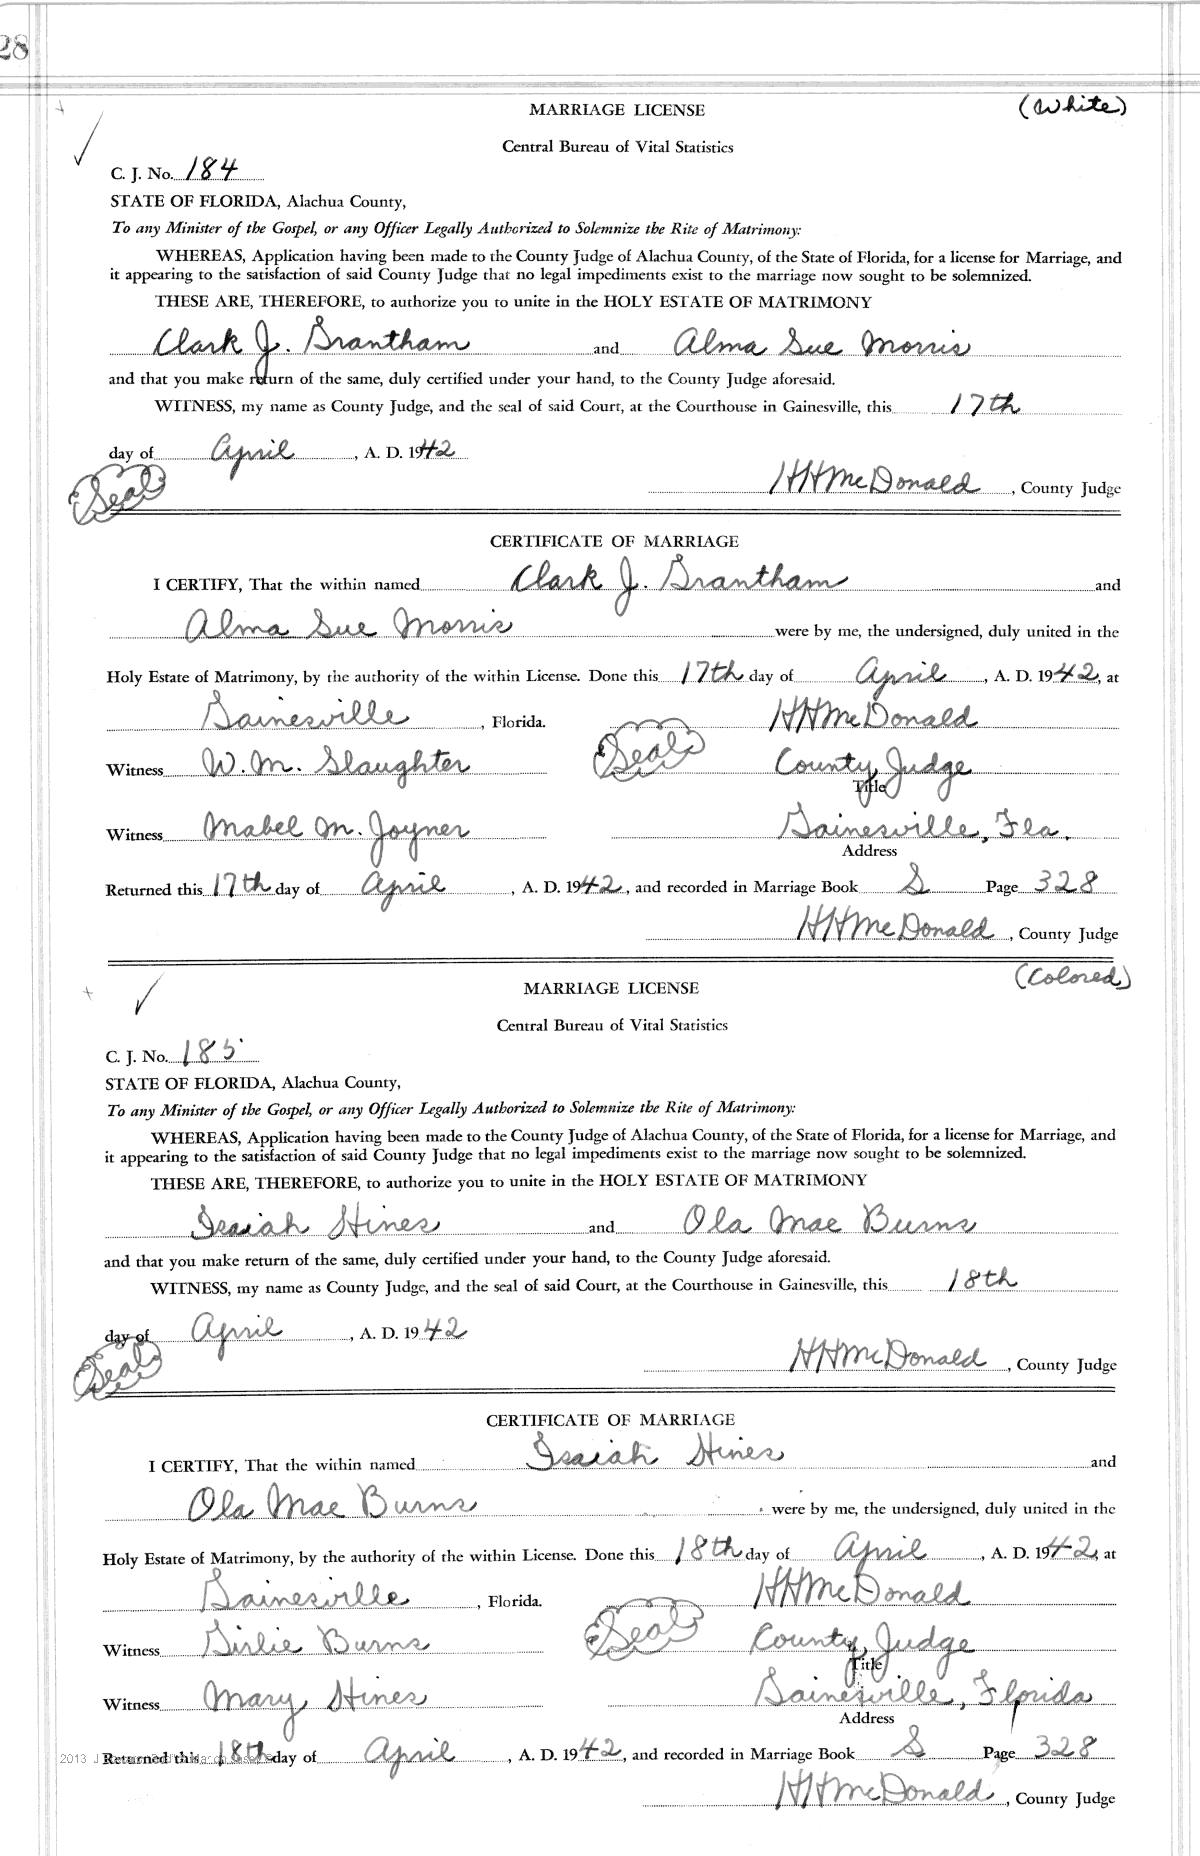 28
MARRIAGE LICENSE (White)
Central Bureau of Vital Statistics
C. J. No. 184
STATE OF FLORIDA, Alachua County,
To any Minister of the Gospel, or any Officer Legally Authorized to Solemnize the Rite of Matrimony:
WHEREAS, Application having been made to the County Judge of Alachua County, of the State of Florida, for a license for Marriage, and
it appearing to the satisfaction of said County Judge that no legal impediments exist to the marriage now sought to be solemnized.
THESE ARE, THEREFORE, to authorize you to unite in the HOLY ESTATE OF MATRIMONY
Clark J. Grantham and Alma Sue Morris
and that you make return of the same, duly certified under your hand, to the County Judge aforesaid.
WITNESS, my name as County Judge, and the seal of said Court, at the Courthouse in Gainesville, this 17th
day of April, A. D. 1942
Seal HHMcDonald, County Judge
CERTIFICATE OF MARRIAGE
I CERTIFY, That the within named Clark J. Grantham and
Alma Sue Morris were by me, the undersigned, duly united in the
Holy Estate of Matrimony, by the authority of the within License. Done this 17th day of April, A. D. 1942, at
Gainesville, Florida. HHMcDonald
Witness W. M. Slaughter Seal County Judge
Title
Witness Mabel M. Joyner Gainesville, Fla.
Address
Returned this 17th day of April, A. D. 1942, and recorded in Marriage Book S Page 328
HHMcDonald, County Judge
MARRIAGE LICENSE (Colored)
Central Bureau of Vital Statistics
C. J. No. 185
STATE OF FLORIDA, Alachua County,
To any Minister of the Gospel, or any Officer Legally Authorized to Solemnize the Rite of Matrimony:
WHEREAS, Application having been made to the County Judge of Alachua County, of the State of Florida, for a license for Marriage, and
it appearing to the satisfaction of said County Judge that no legal impediments exist to the marriage now sought to be solemnized.
THESE ARE, THEREFORE, to authorize you to unite in the HOLY ESTATE OF MATRIMONY
Isaiah Hines and Ola Mae Burns
and that you make return of the same, duly certified under your hand, to the County Judge aforesaid.
WITNESS, my name as County Judge, and the seal of said Court, at the Courthouse in Gainesville, this 18th
day of April, A. D. 1942
Seal HHMcDonald, County Judge
CERTIFICATE OF MARRIAGE
I CERTIFY, That the within named Isaiah Hines and
Ola Mae Burns were by me, the undersigned, duly united in the
Holy Estate of Matrimony, by the authority of the within License. Done this 18th day of April, A. D. 1942, at
Gainesville, Florida. HHMcDonald
Witness Girlie Burns Seal County Judge
Title
Witness Mary Hines Gainesville, Florida
Address
2013 Returned this 18th day of April, A. D. 1942, and recorded in Marriage Book S Page 328
HHMcDonald, County Judge